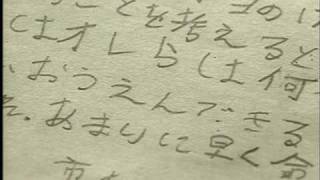 ことを考えると
はオレらは何
おうえんできる
あまりに早く命